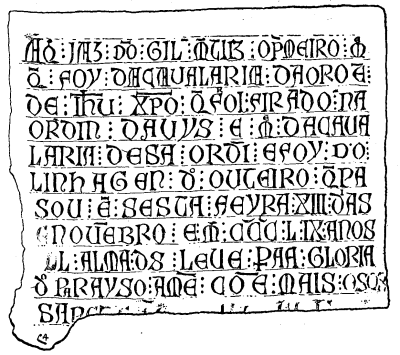 AQ̃ : JAZ : DÕ : GIL : MĨZ : OPM̃EIRO : M̃
Q̃ : FOY : DACAUALARIA : DAORDẼ :
DE : IH̃U : XP̃O : Q̃ FOI : FIRADO : NA
ORDIN : DAUYS : E : M̃ : DACAUA
LARIA : DESA : ORDĨ : EFOY : DO
LINHAGEN : DO : OUTEIRO : Q̃PA
SOU : Ẽ : SESTA : FEYRA : XIII : DAS
NOUẼBRO : E M̃ : CCC : LIX : ANOS
ALMA : DS : LEUE : PAA : GLORIA
DO PARAYSO : AMẼ : CÕ E : MAIS : OSOS
SANC